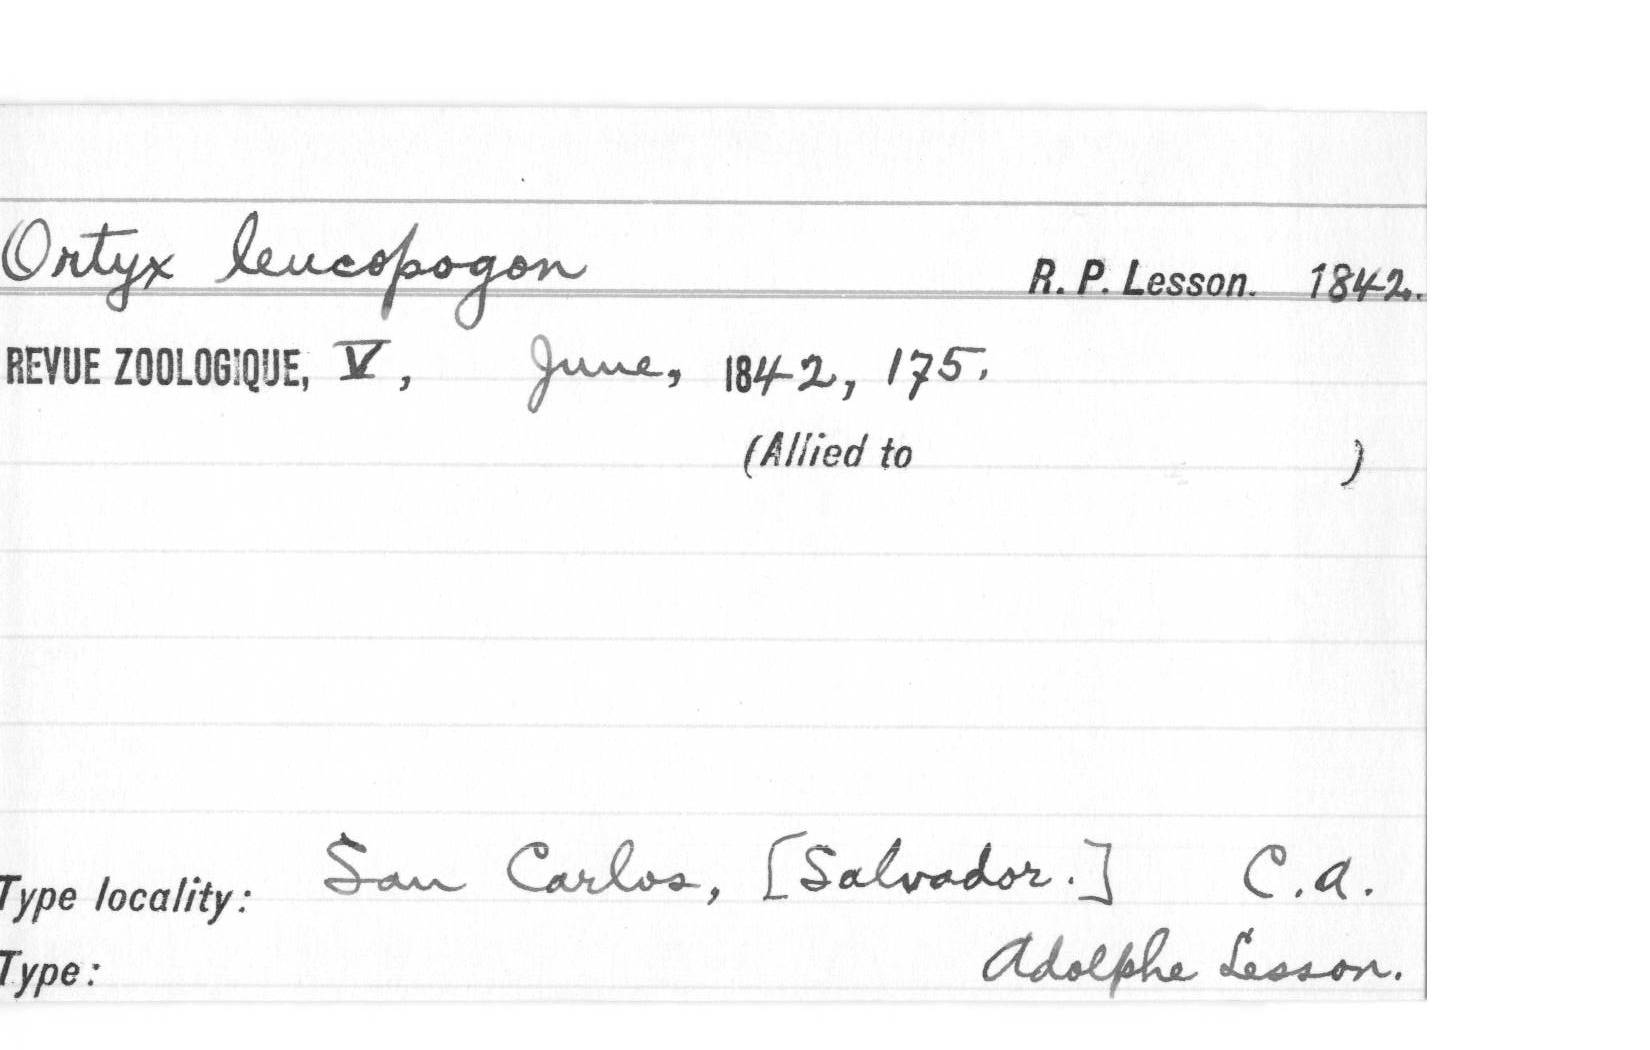 Ortyx leucopogon R. P. Lesson. 1842.
REVUE ZOOLOGIQUE, V, June, 1842, 175.
(Allied to )
Type locality: San Carlos, [Salvador.] C.A.
Type: Adolphe Lesson.